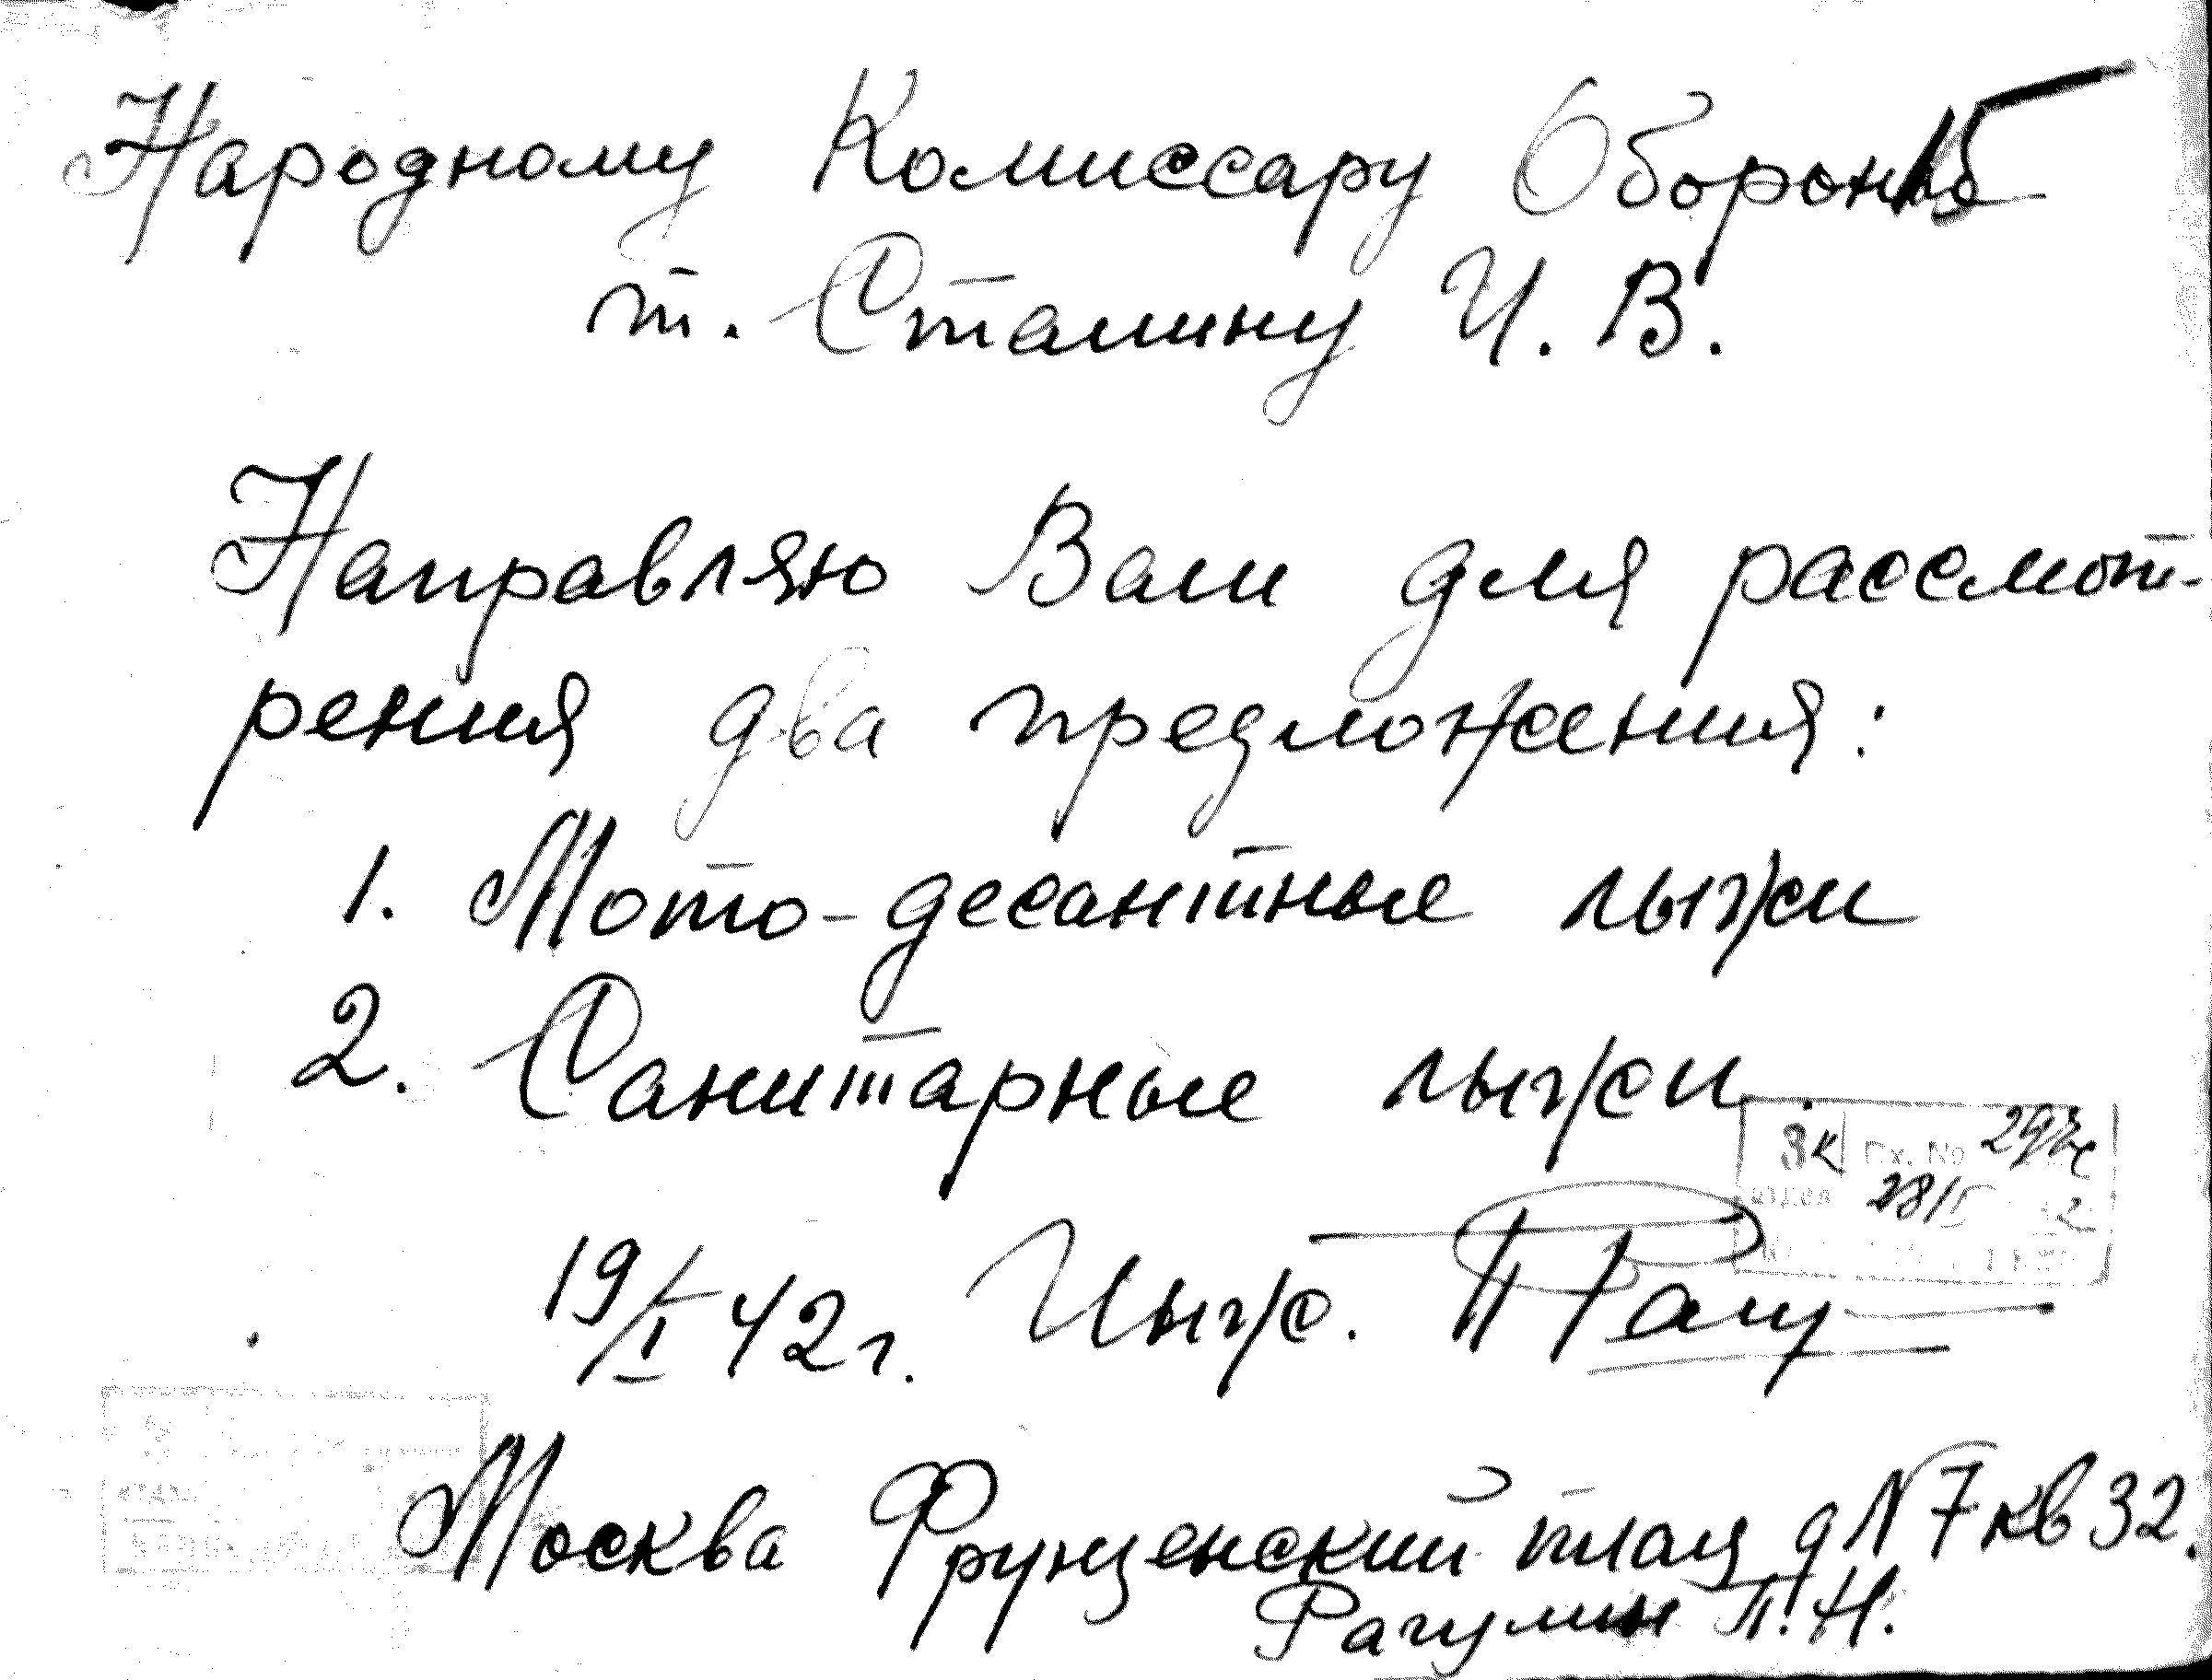 Народному Комиссару Обороны
т. Сталину И. В.
Направляю Вам для рассмот-
рения два предложения:
1. Мото-десантные лыжи
2. Санитарные лыжи.
3к Вх. №
28/I
19/I 42 г. Инж. ПРагу
Москва Фрунзенский плац д N 7 кв 32.
Рагулин П. Н.